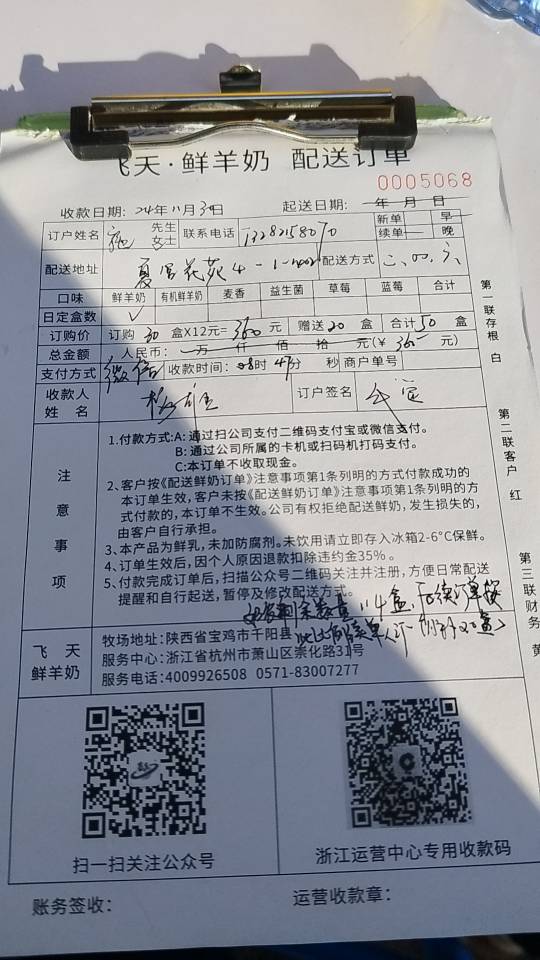 飞天·鲜羊奶 配送订单
0005068
收款日期: 24年11月30日 起送日期: 年 月 日
订户姓名 先生 女士 联系电话 新单 早 续单 晚
配送地址 夏宫花苑4-1- 配送方式 二、四、六
口味 鲜羊奶 有机鲜羊奶 麦香 益生菌 草莓 蓝莓 合计
日定盒数 ✓
订购价 订购 30 盒X12元= 360 元 赠送 20 盒 合计 50 盒
总金额 人民币: 万 仟 佰 拾 元(¥ 360 元)
支付方式 微信 收款时间: 8时 47分 秒 商户单号
收款人姓名 订户签名
注意事项
1、付款方式:A: 通过扫公司支付二维码支付宝或微信支付。
B: 通过公司所属的卡机或扫码机打码支付。
C:本订单不收取现金。
2、客户按《配送鲜奶订单》注意事项第1条列明的方式付款成功的
本订单生效，客户未按《配送鲜奶订单》注意事项第1条列明的方
式付款的，本订单不生效。公司有权拒绝配送鲜奶，发生损失的，
由客户自行承担。
3、本产品为鲜乳，未加防腐剂。未饮用请立即存入冰箱2-6°C保鲜。
4、订单生效后，因个人原因退款扣除违约金35%。
5、付款完成订单后，扫描公众号二维码关注并注册，方便日常配送
提醒和自行起送，暂停及修改配送方式。
数量 114盒
飞天鲜羊奶
牧场地址: 陕西省宝鸡市千阳县
服务中心: 浙江省杭州市萧山区崇化路31号
服务电话: 4009926508 0571-83007277
扫一扫关注公众号 浙江运营中心专用收款码
账务签收: 运营收款章:
第一联存根 白
第二联客户 红
第三联财务 黄